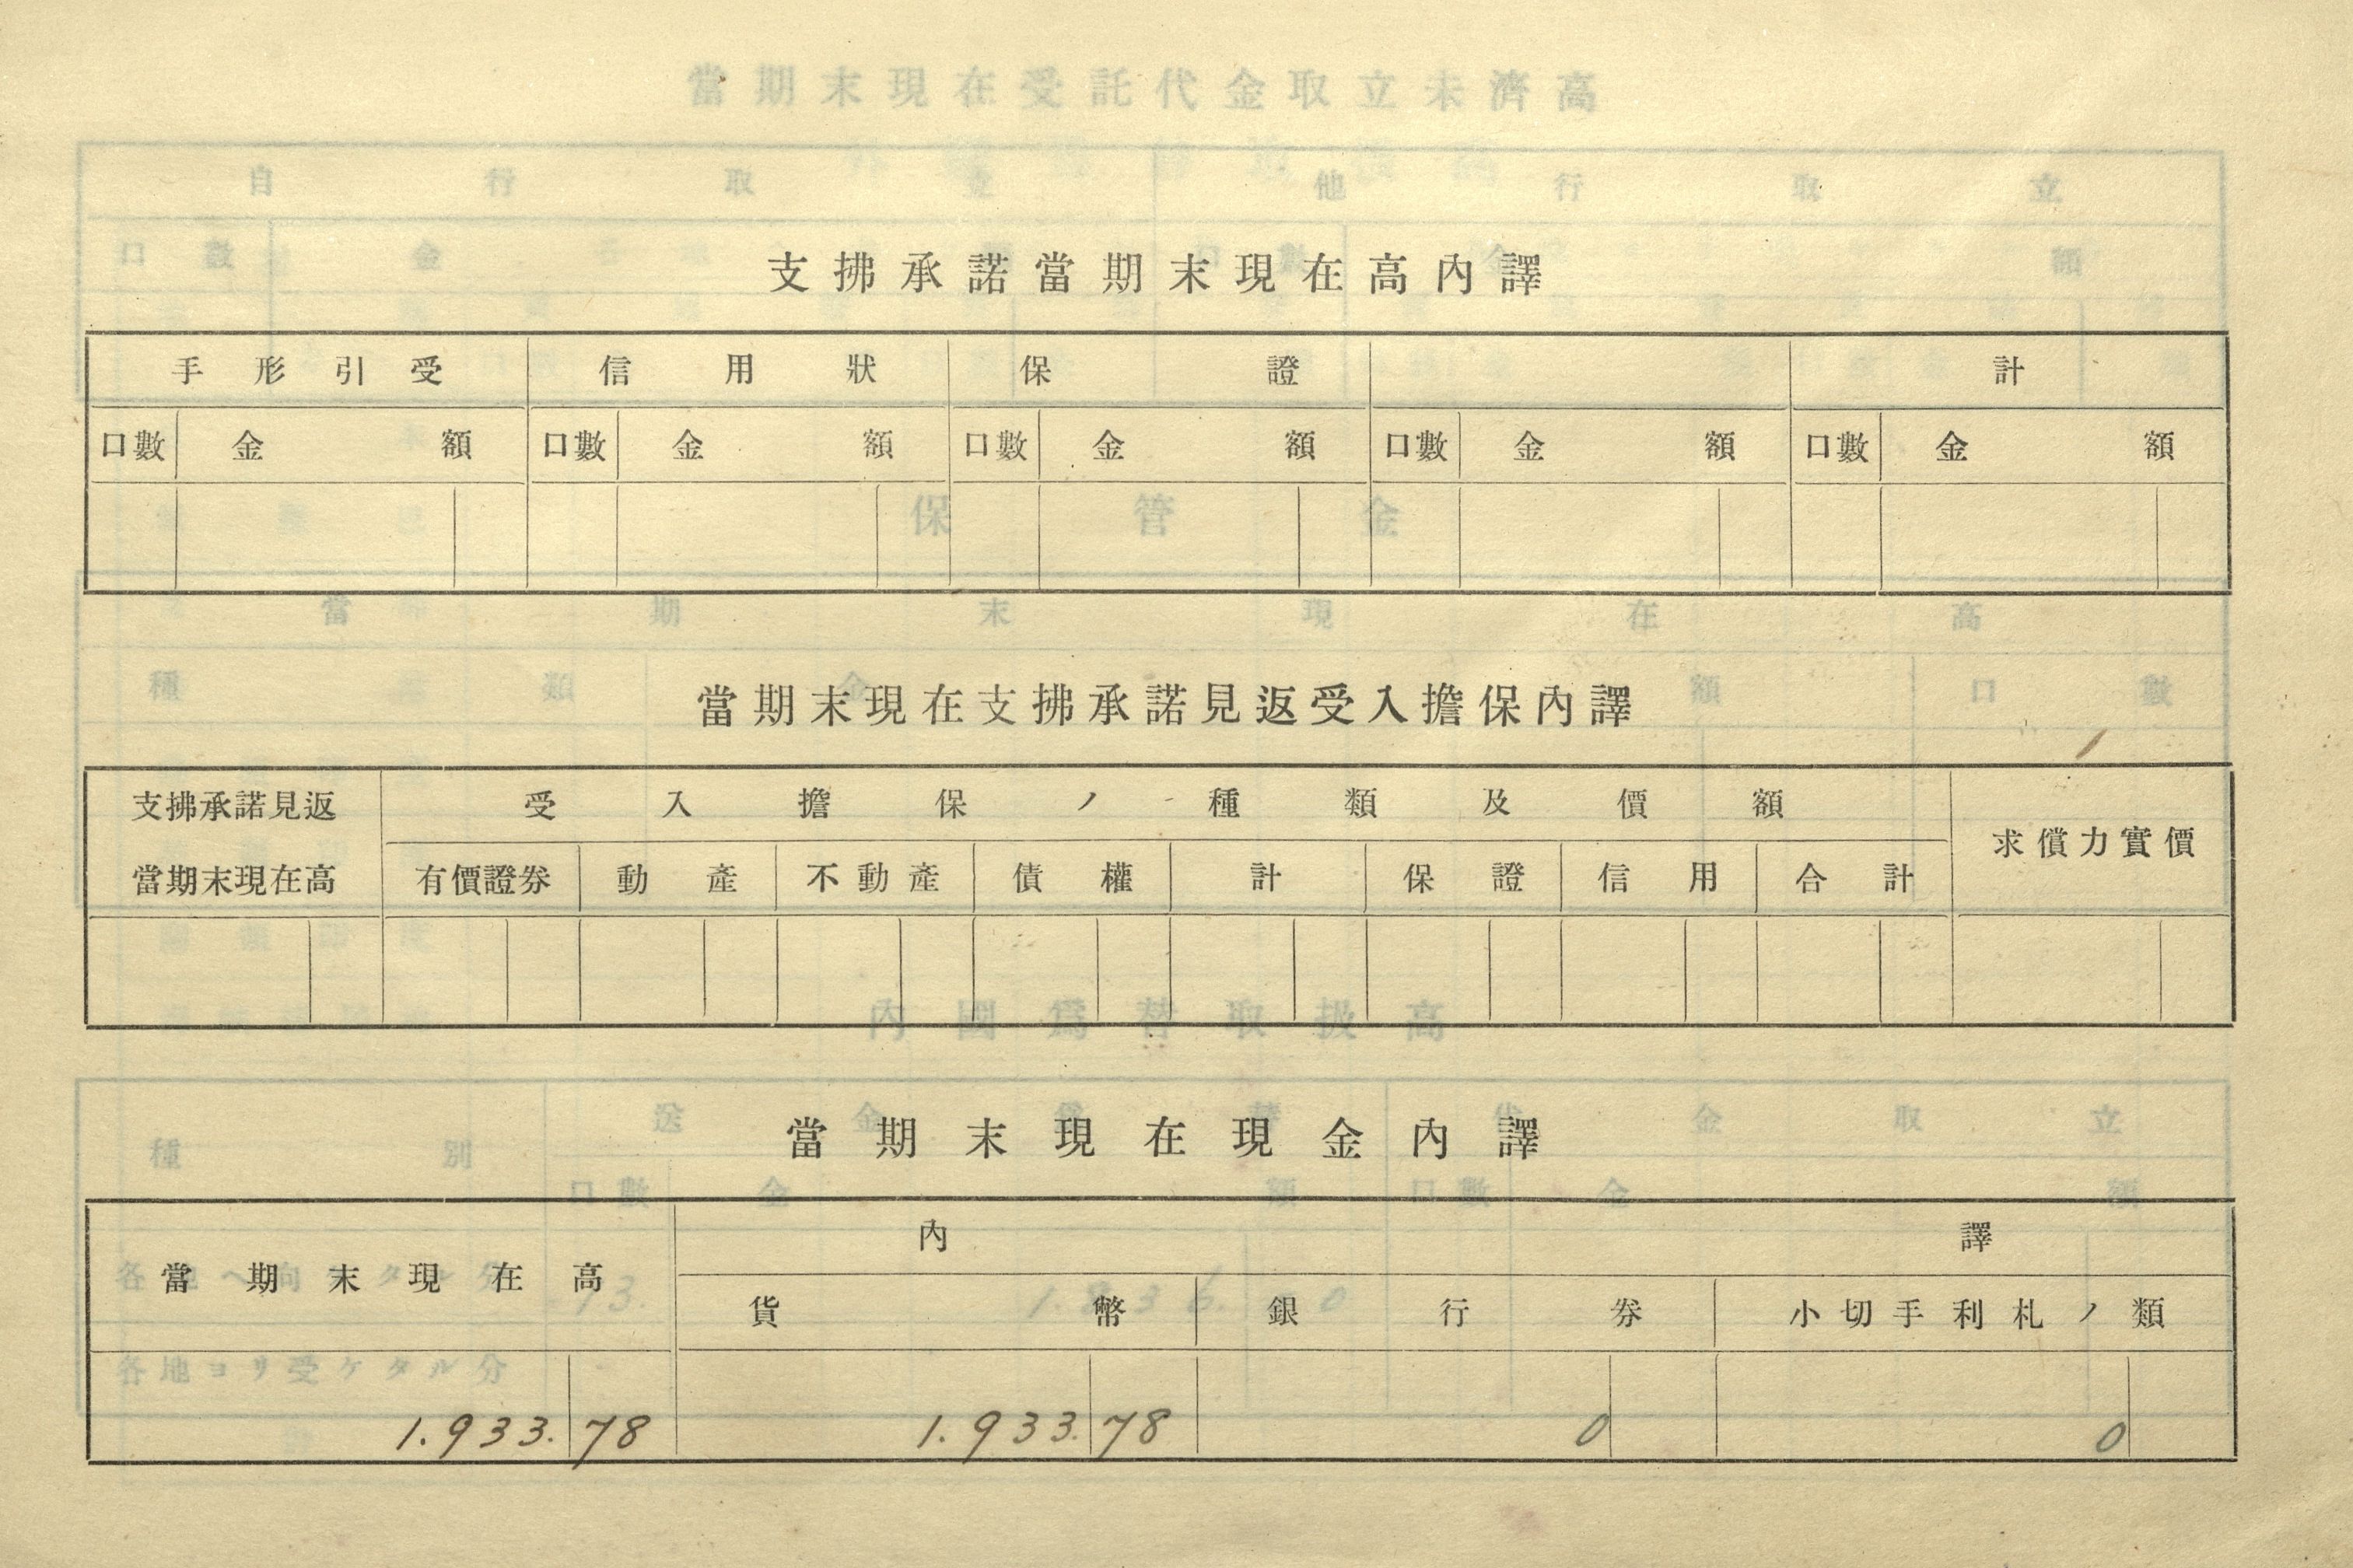 支拂承諾當期末現在高內譯
手形引受 信用狀 保證 計
口數 金額 口數 金額 口數 金額 口數 金額 口數 金額
當期末現在支拂承諾見返受入擔保內譯
支拂承諾見返 受入擔保ノ種類及價額
求償力實價
當期末現在高 有價證券 動產 不動產 債權 計 保證 信用 合計
當期末現在現金內譯
內譯
當期末現在高
貨幣 銀行券 小切手利札ノ類
1.933.78 1.933.78 0 0